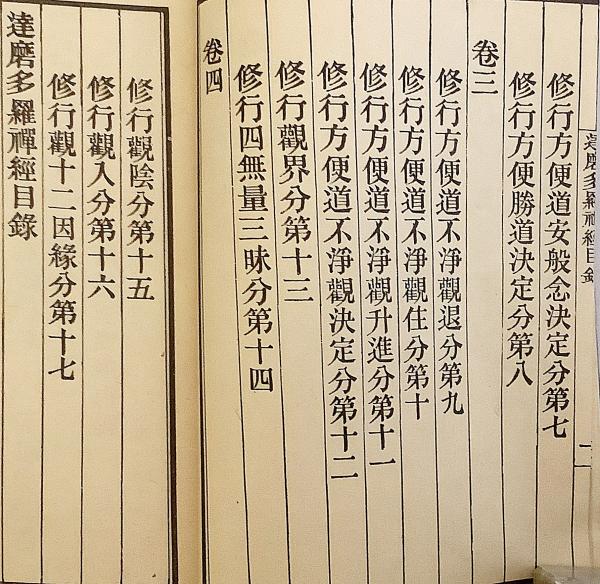 達磨多羅禪經目錄
修行方便道安般念決定分第七
修行方便勝道決定分第八
卷三
修行方便道不淨觀退分第九
修行方便道不淨觀住分第十
修行方便道不淨觀升進分第十一
修行方便道不淨觀決定分第十二
修行觀界分第十三
修行四無量三昧分第十四
卷四
修行觀陰分第十五
修行觀入分第十六
修行觀十二因緣分第十七
達磨多羅禪經目錄